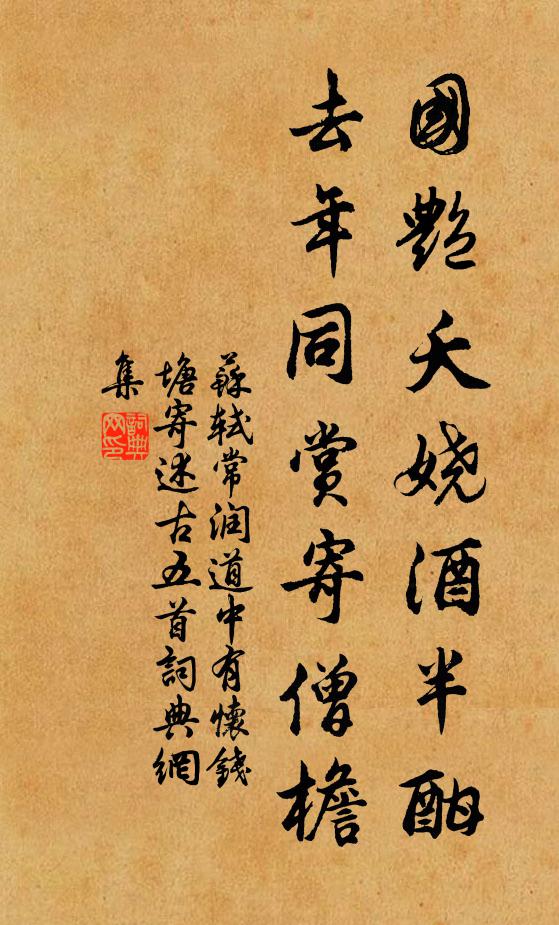 國艷夭娆酒半酣
去年同赏寄僧檐
蘇軾常润道中有懷錢
塘寄述古五首詞典網
集
詞典
网印